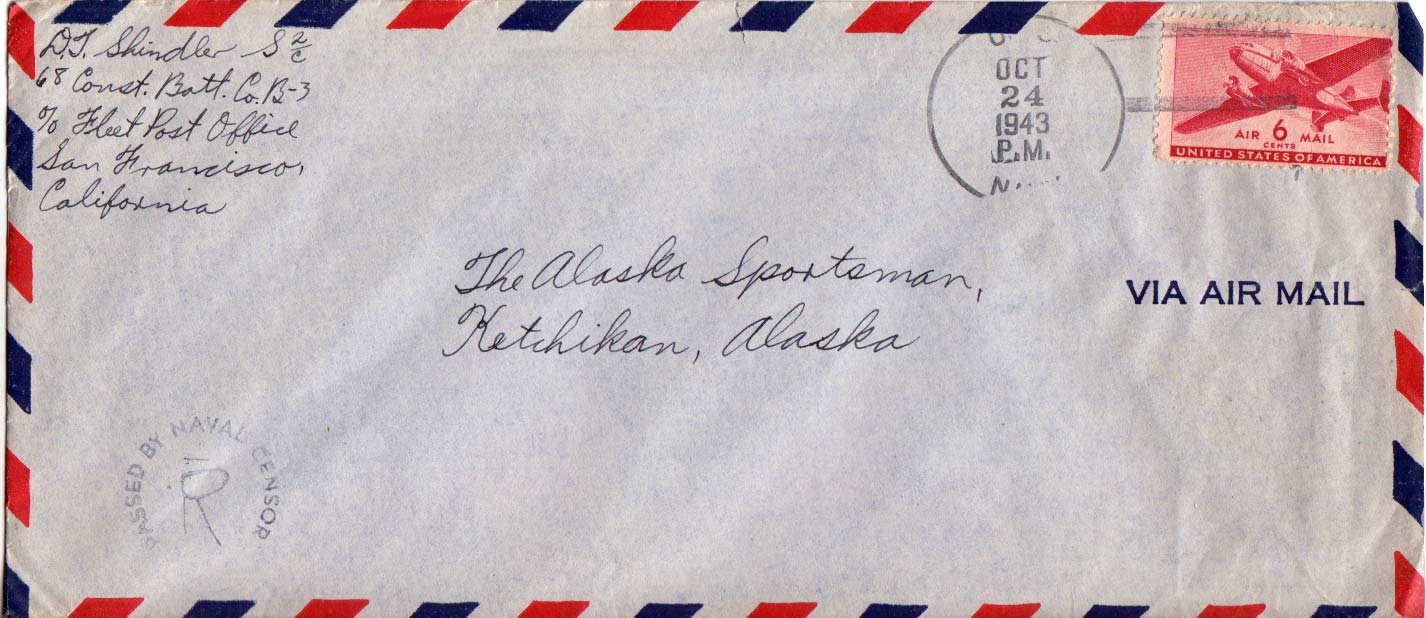 D.T. Shindler S 2/c
68 Const. Batt. Co. B-3
c/o Fleet Post Office
San Francisco,
California
OCT
24
1943
P.M.
AIR 6 MAIL
CENTS
UNITED STATES OF AMERICA
The Alaska Sportsman,
Ketchikan, Alaska
VIA AIR MAIL
PASSED BY NAVAL CENSOR